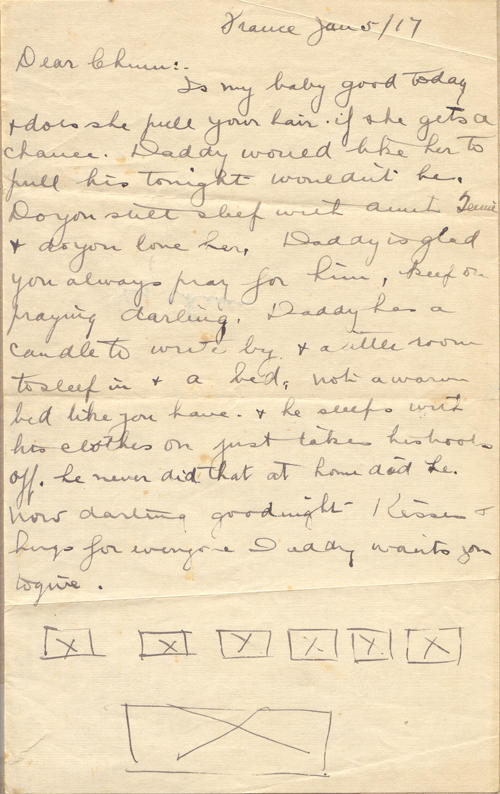 France Jan 5/17
Dear Chum:-
Is my baby good today
+ does she pull your hair. if she gets a
chance. Daddy would like her to
pull his tonight wouldn't he.
Do you still sleep with aunt
+ do you love her, Daddy is glad
you always pray for him, keep on
praying darling. Daddy has a
candle to write by + a little room
to sleep in + a bed, not a warm
bed like you have. + he sleeps with
his clothes on just takes his boots
off. he never did that at home did he.
now darling goodnight Kisses +
hugs for everyone Daddy wants you
to give.
X X X X X X
X